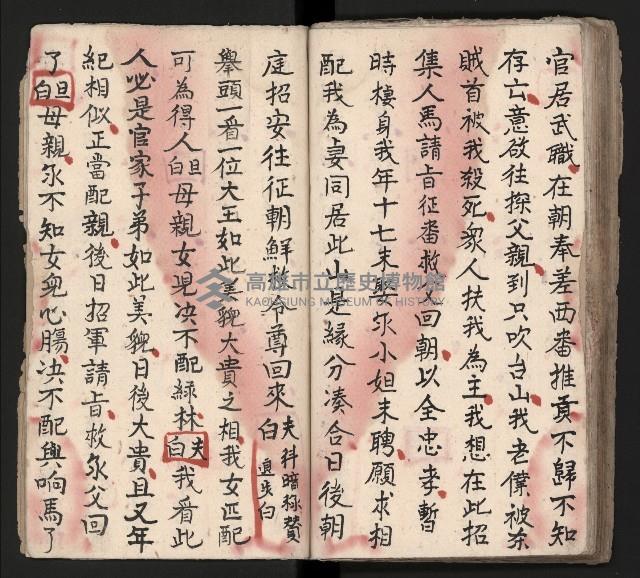 官居武職在朝奉差西番推貢不歸不知
存亡意欲往探父親到只吹台山我老僕被杀
賊首被我殺死眾人扶我為主我想在此招
集人馬請旨征番救父回朝以全忠孝暫
時棲身我年十七未娶永小姐未聘願求相
配我為妻同居此山是緣分湊合日後朝
庭招安往征朝鮮救爺尊回來白夫科暗称贊
連失白
舉頭一看一位大王如此美貌大貴之相我女匹配
可為得人白旦母親女兒决不配綠林白夫我看此
人必是官家子弟如此美貌日後大貴且又年
紀相似正當配親後日招軍請旨救永父回
了白旦母親永不知女兒心腸决不配與响馬了
高雄市立歷史博物館
KAOHSIUNG MUSEUM OF HISTORY